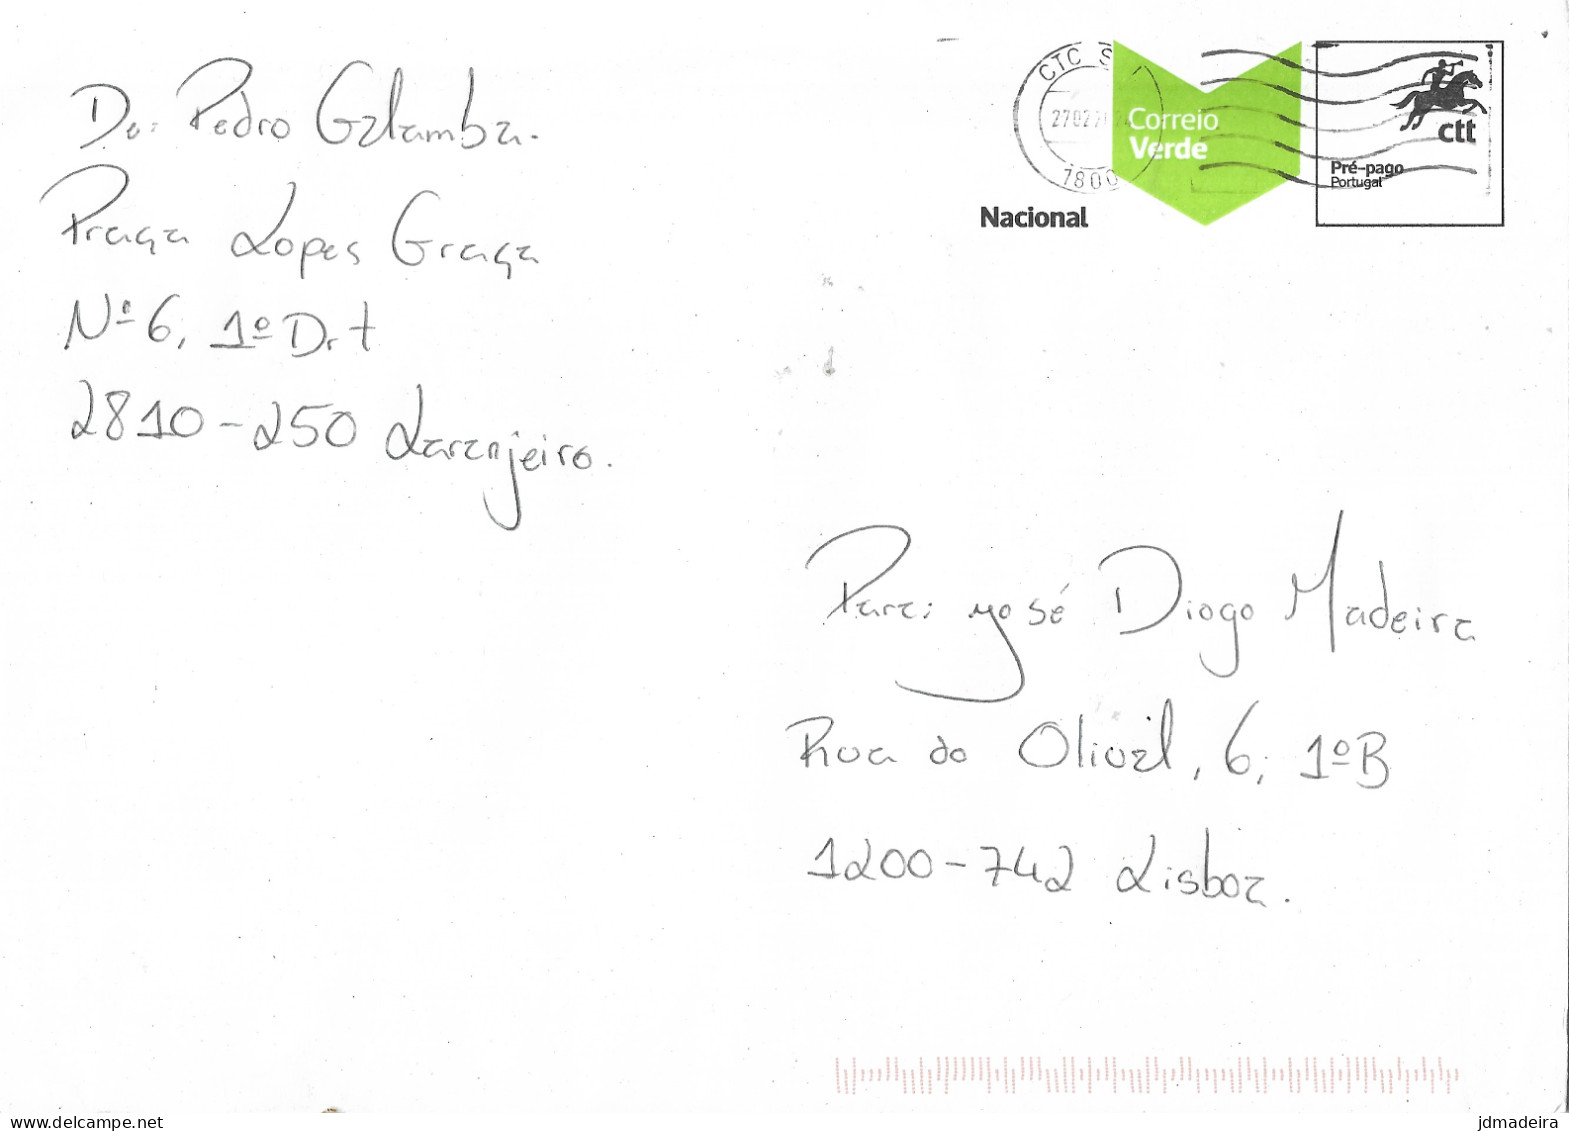 De: Pedro Galamba.
Praça Lopes Graça
Nº 6, 1º Drt
2810-250 Laranjeiro.
CTC S
7800
Correio
Verde
Nacional
ctt
Pré-pago
Portugal
Para: José Diogo Madeira
Rua do Olival, 6, 1ºB
1200-742 Lisboa.
delcampe.net
jdmadeira